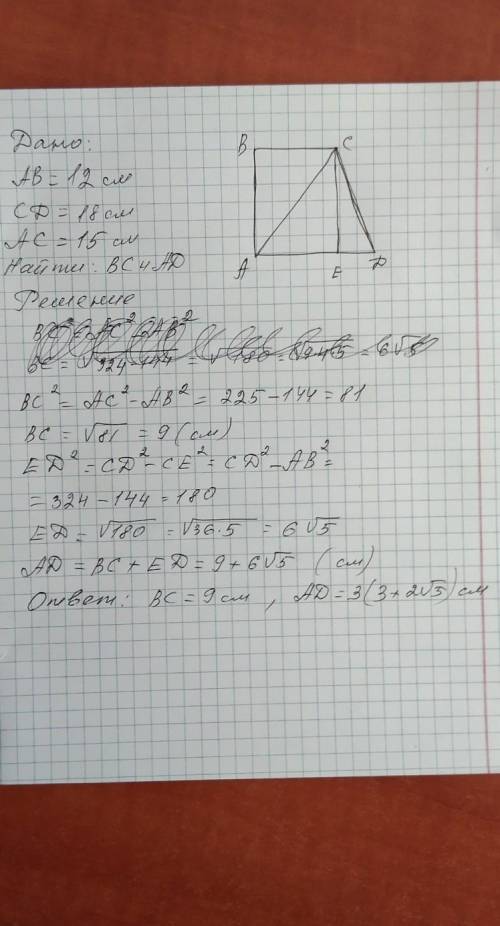 Дано:
AB = 12 см
CD = 18 см
AC = 15 см
Найти: BC и AD
B C
A E D
Решение
BC² = AC² - AB² = 225 - 144 = 81
BC = √81 = 9 (см)
ED² = CD² - CE² = CD² - AB² =
= 324 - 144 = 180
ED = √180 = √36·5 = 6√5
AD = BC + ED = 9 + 6√5 (см)
Ответ: BC = 9 см, AD = 3(3 + 2√5) см